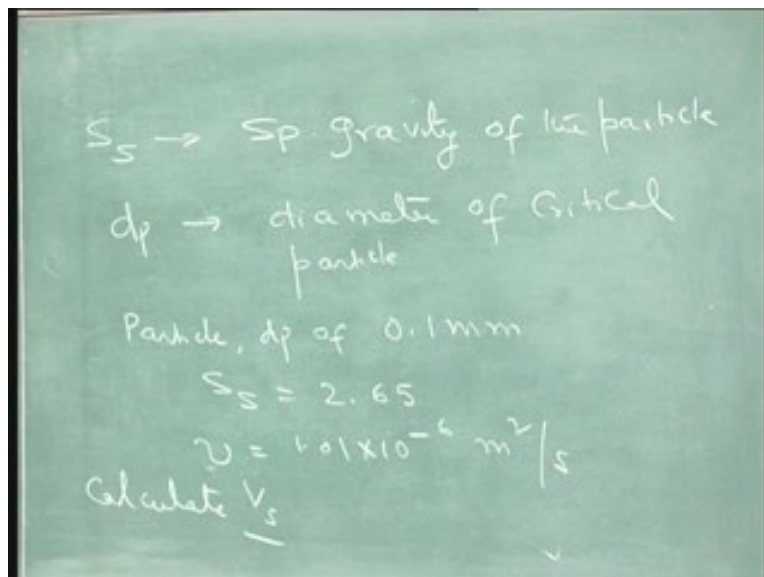 Ss → Sp. gravity of the particle
dp → diameter of Critical
particle
Particle, dp of 0.1mm
Ss = 2.65
υ = 1.01×10⁻⁶ m²/s
Calculate Vs